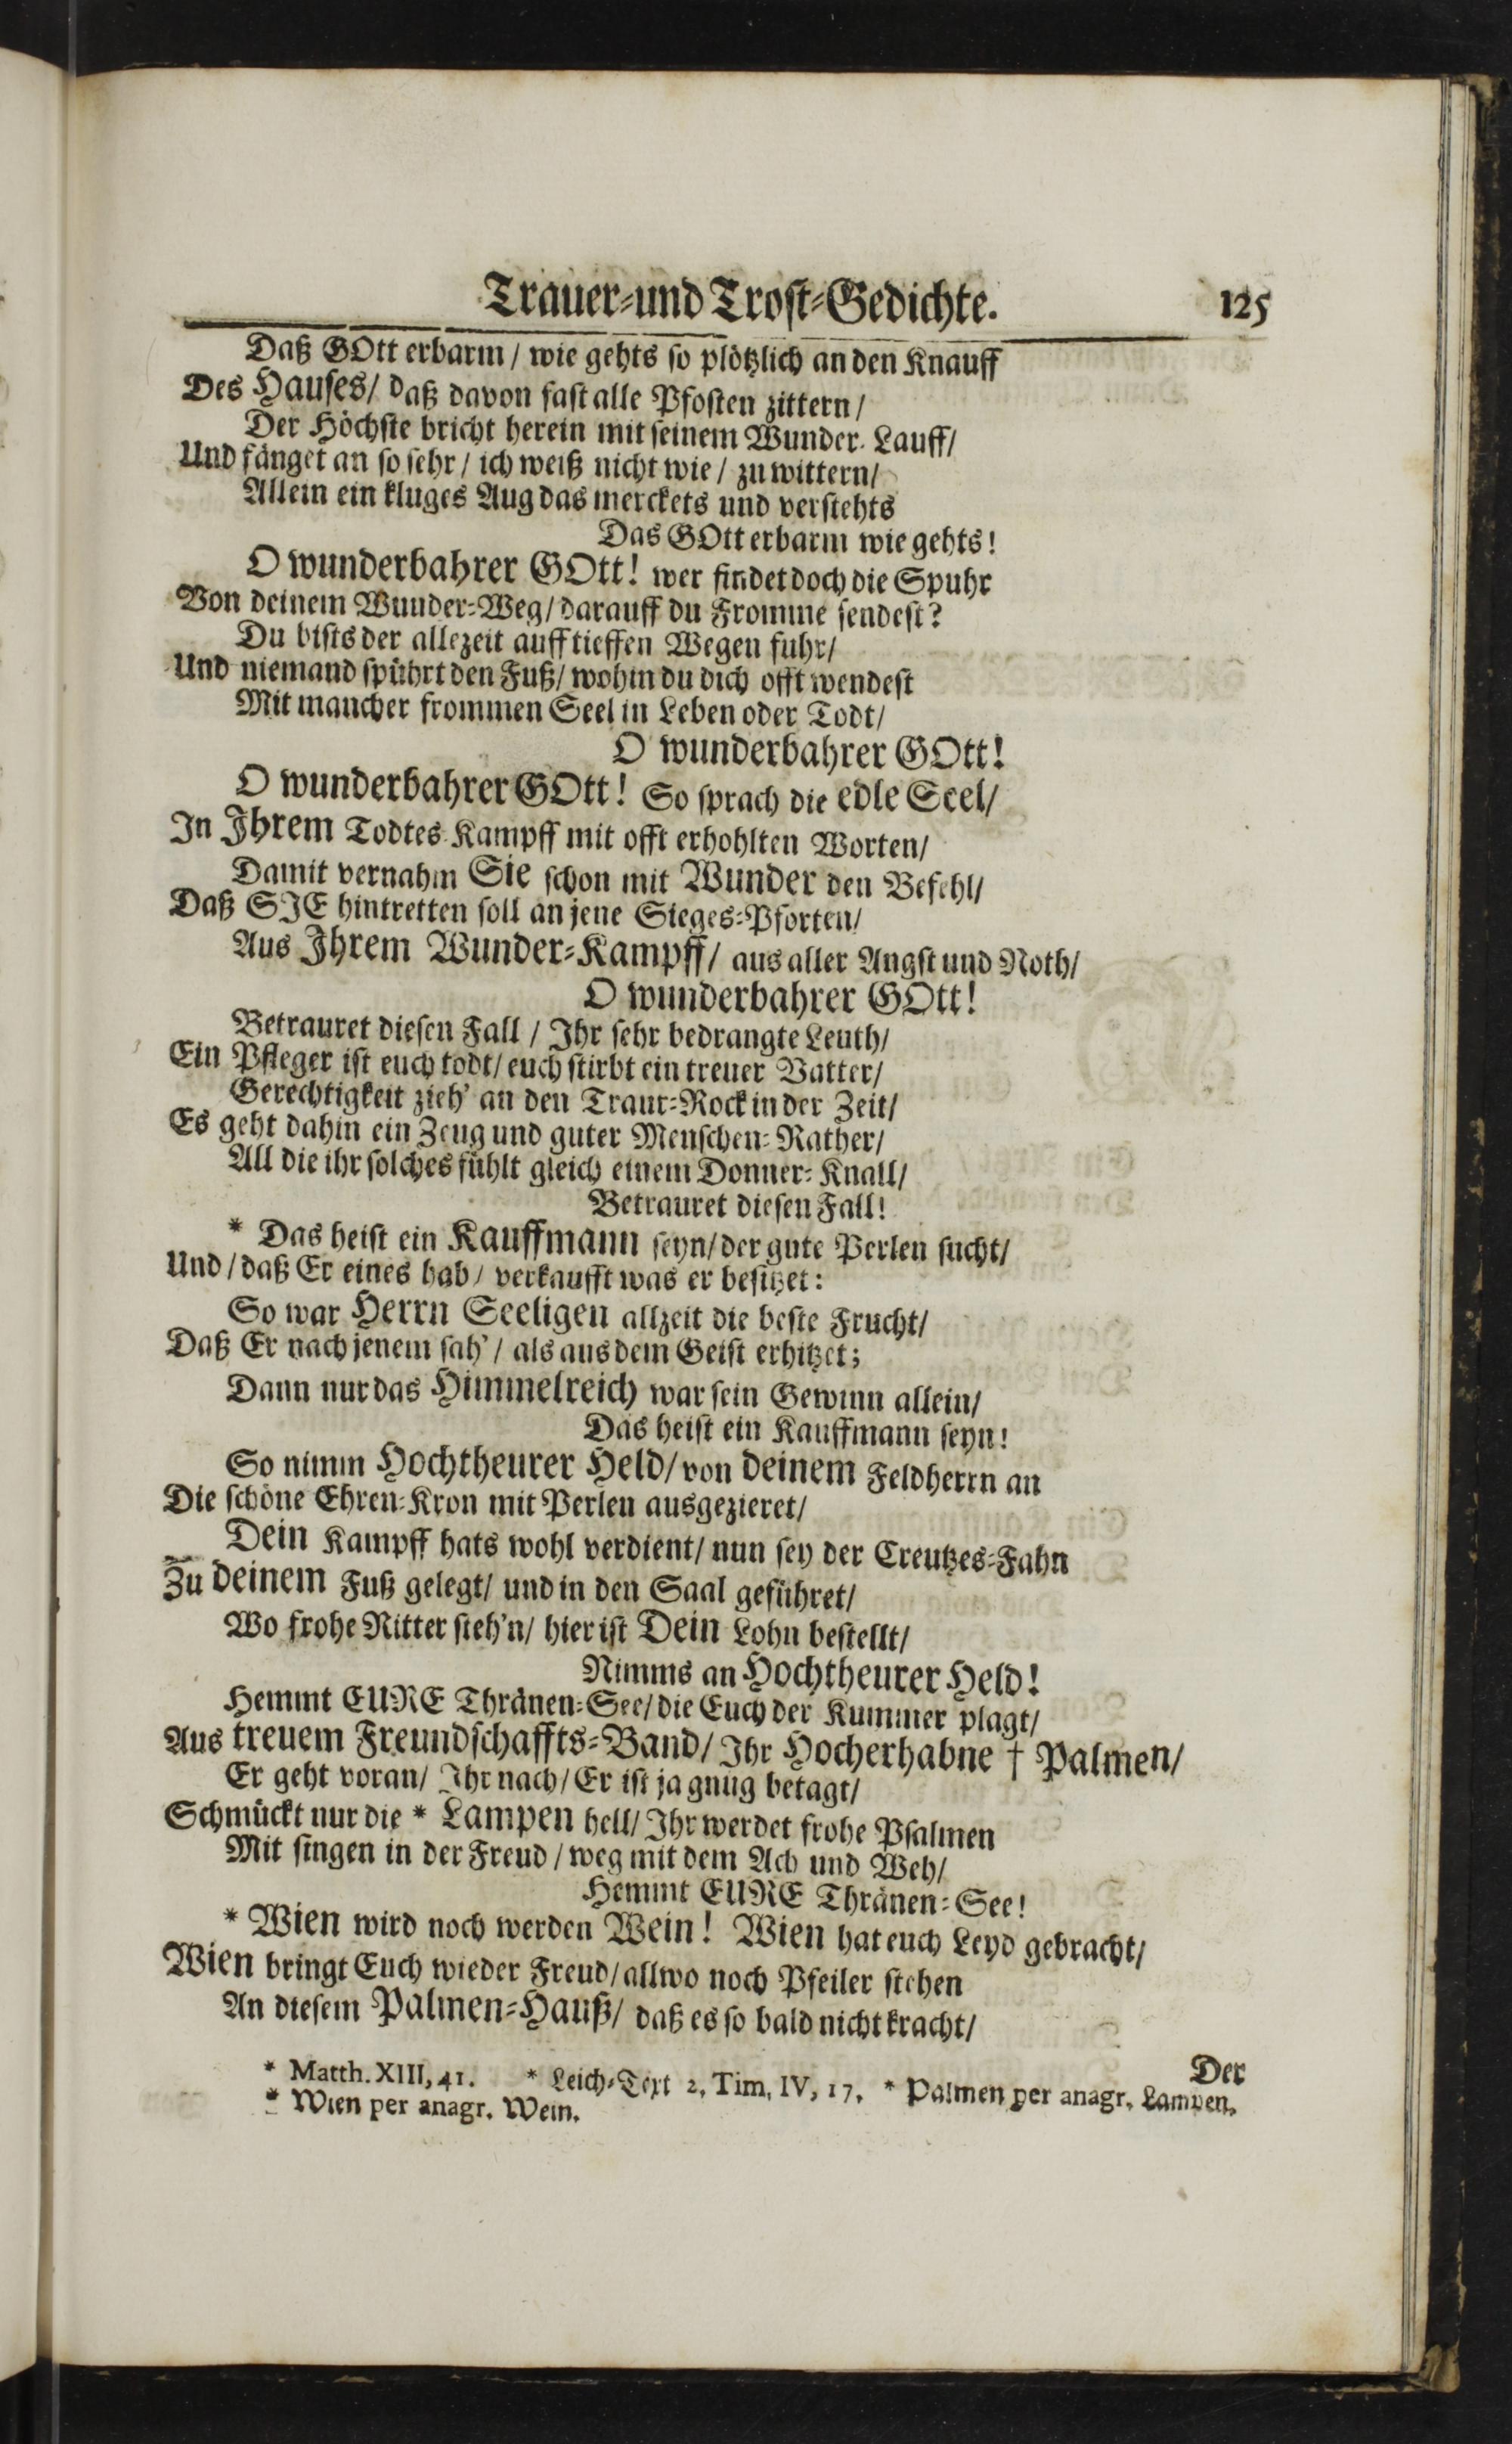 Trauer-und Trost-Gedichte. 125
Daß GOtt erbarm / wie gehts so plötzlich an den Knauff
Des Hauses / daß davon fast alle Pfosten zittern /
Der Höchste bricht herein mit seinem Wunder-Lauff /
Und fänget an so sehr / ich weiß nicht wie / zu wittern /
Allein ein kluges Aug das merckets und verstehts
Das GOtt erbarm wie gehts!
O wunderbahrer GOtt! wer findet doch die Spuhr
Von deinem Wunder-Weg / darauff du Fromme sendest?
Du bists der allezeit auff tieffen Wegen fuhr /
Und niemand spührt den Fuß / wohin du dich offt wendest
Mit mancher frommen Seel in Leben oder Todt /
O wunderbahrer GOtt!
O wunderbahrer GOtt! So sprach die edle Seel /
In Ihrem Todtes-Kampff mit offt erhohlten Worten /
Damit vernahm Sie schon mit Wunder den Befehl /
Daß SIE hintretten soll an jene Sieges-Pforten /
Aus Ihrem Wunder-Kampff / aus aller Angst und Noth /
O wunderbahrer GOtt!
Betrauret diesen Fall / Ihr sehr bedrangte Leuth /
Ein Pfleger ist euch todt / euch stirbt ein treuer Vatter /
Gerechtigkeit zieh' an den Traur-Rock in der Zeit /
Es geht dahin ein Zeug und guter Menschen-Rather /
All die ihr solches fühlt gleich einem Donner-Knall /
Betrauret diesen Fall!
* Das heist ein Kauffmann seyn / der gute Perlen sucht /
Und / daß Er eines hab / verkaufft was er besitzet:
So war Herrn Seeligen allzeit die beste Frucht /
Daß Er nach jenem sah' / als aus dem Geist erhitzet;
Dann nur das Himmelreich war sein Gewinn allein /
Das heist ein Kauffmann seyn!
So nimm Hochtheurer Held / von deinem Feldherrn an
Die schöne Ehren-Kron mit Perlen ausgezieret /
Dein Kampff hats wohl verdient / nun sey der Creutzes-Fahn
Zu deinem Fuß gelegt / und in den Saal geführet /
Wo frohe Ritter steh'n / hier ist Dein Lohn bestellt /
Nimms an Hochtheurer Held!
Hemmt EURE Thränen-See / die Euch der Kummer plagt /
Aus treuem Freundschaffts-Band / Ihr Hocherhabne † Palmen /
Er geht voran / Ihr nach / Er ist ja gnug betagt /
Schmückt nur die * Lampen hell / Ihr werdet frohe Psalmen
Mit singen in der Freud / weg mit dem Ach und Weh /
Hemmt EURE Thränen-See!
* Wien wird noch werden Wein! Wien hat euch Leyd gebracht /
Wien bringt Euch wieder Freud / allwo noch Pfeiler stehen
An diesem Palmen-Hauß / daß es so bald nicht kracht /
Der
* Matth. XIII, 41. * Leich-Text 2. Tim, IV, 17. * Palmen per anagr. Lampen.
* Wien per anagr. Wein.